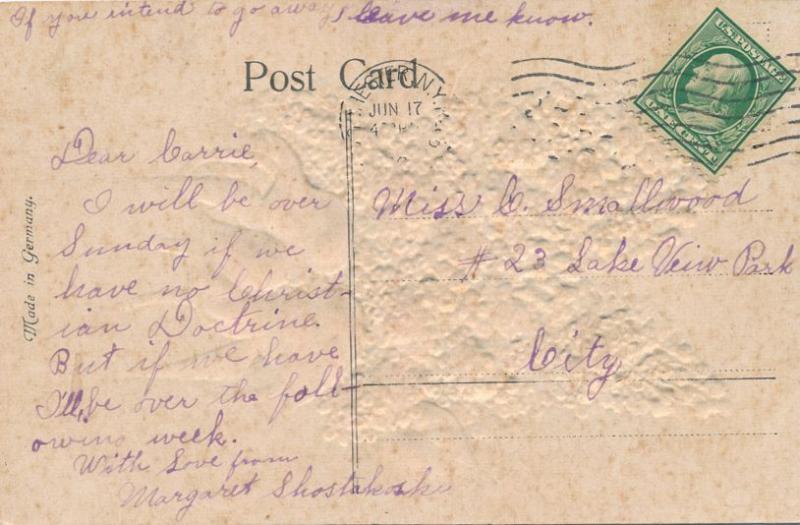 If you intend to go away leave me know.
Post Card
U.S. POSTAGE
JUN 17
Dear Carrie,
I will be over
Sunday if we
have no Christ-
ian Doctrine.
But if we have
I'll be over the foll-
owing week.
With Love from
Margaret
Miss C. Smallwood
# 23 Lake Veiw Park
City
Made in Germany.